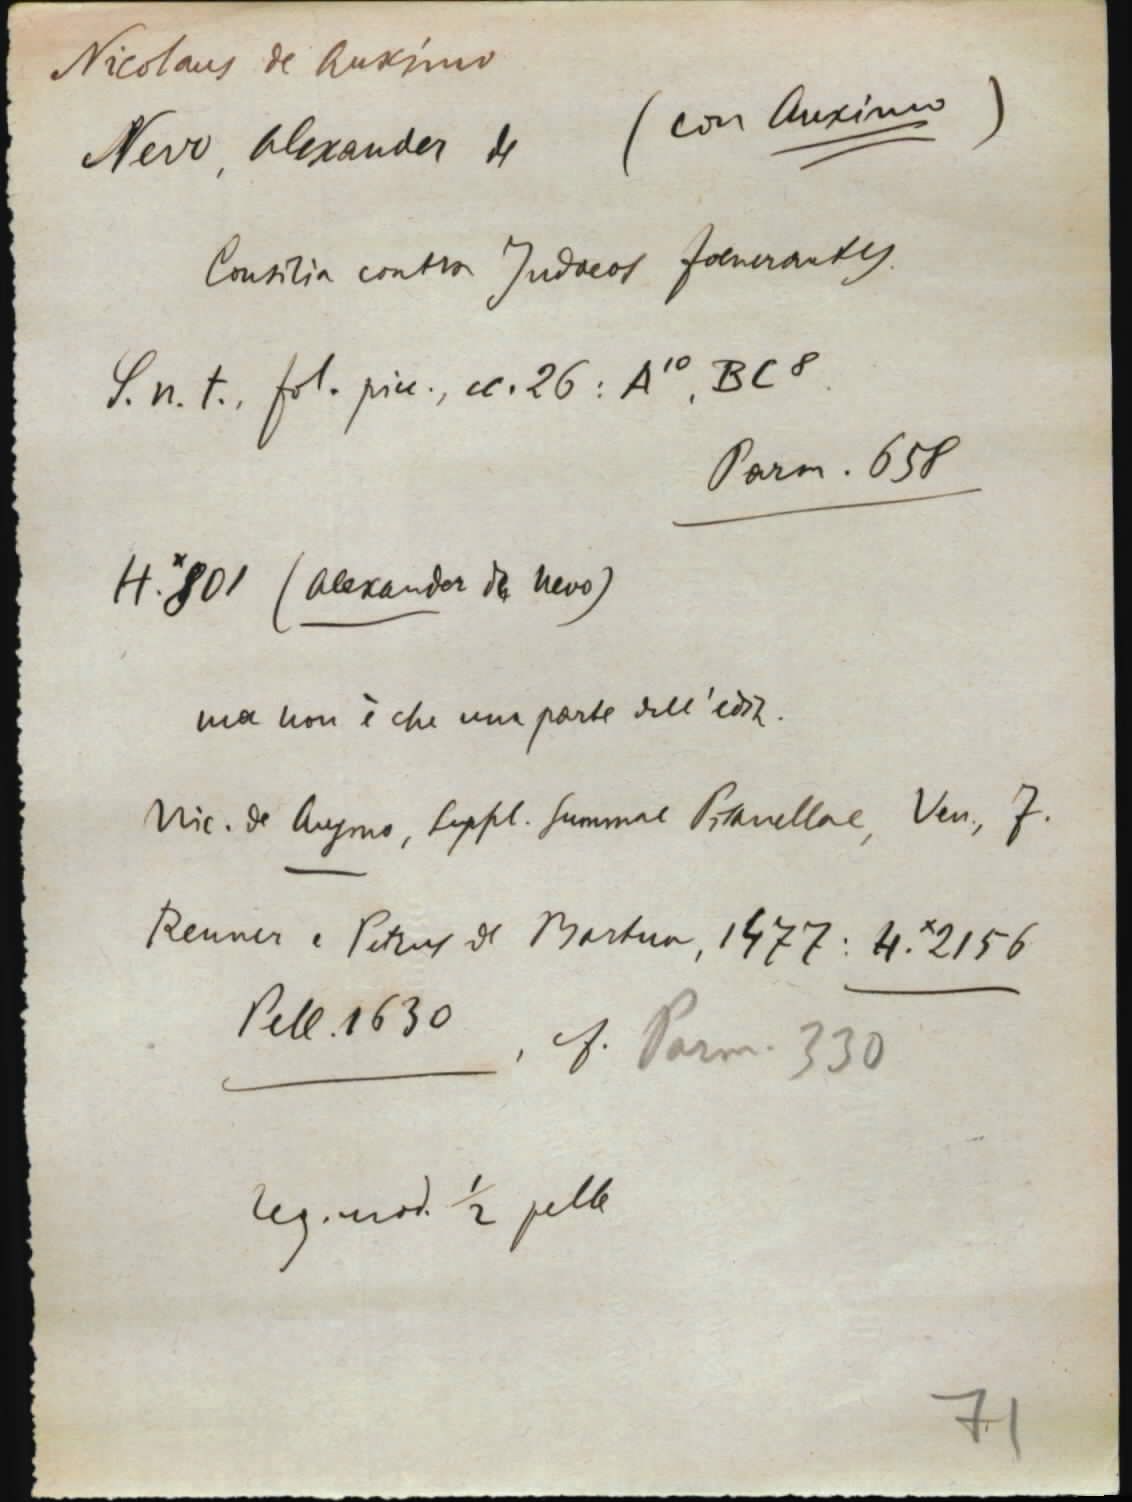 Nicolaus de Auximo
Nevo, Alexander de (con Auximo)
Consilia contra Judaeos foenerantes.
S. n. t., fol. picc., cc. 26 : A¹⁰, BC⁸.
Parm. 658
H.ˣ801 (Alexander de Nevo)
ma non è che una parte dell'ediz.
Nic. de Auxmo, Suppl. Summae Pisanellae, Ven., F.
Renner e Petrus de Bartua, 1477 : H.ˣ2156
Pell. 1630 , cf. Parm. 330
leg. mod. ½ pelle
71